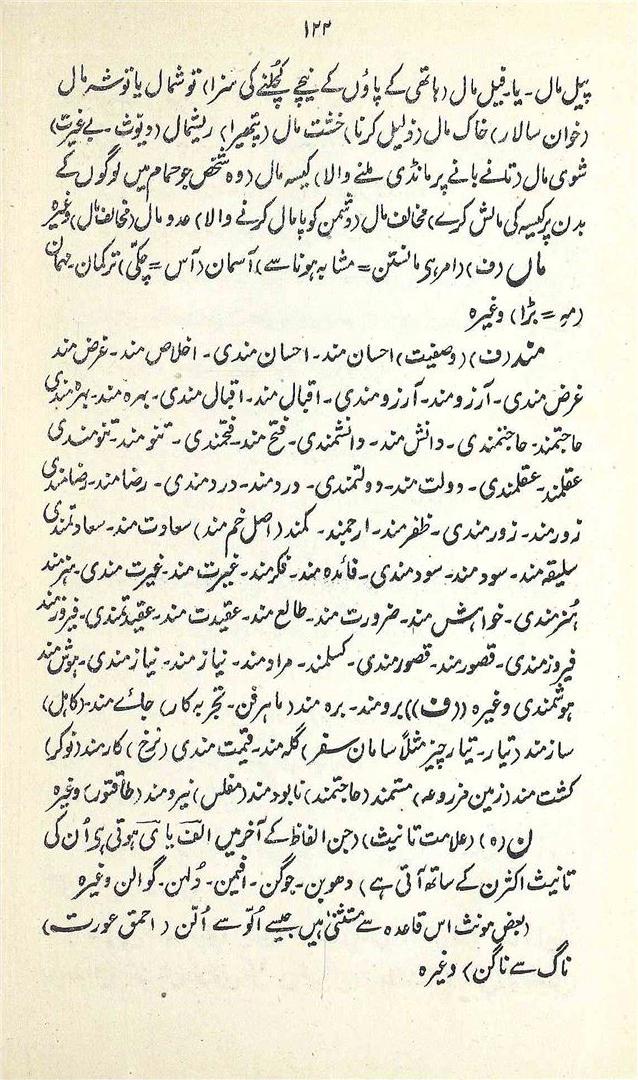 ۱۲۲
پیل مال ۔ یا ۔ فیل مال (ہاتھی کے پاؤں کے نیچے کچلنے کی سزا) توشمال یا توشہ مال
(خوان سالار) خاک مال (ذلیل کرنا) خشت مال (پتھیرا) ریشمال (دیوث ۔ بے غیرت)
شوی مال (تانے بانے پر مانڈی ملنے والا) کیسہ مال (وہ شخص جو حمام میں لوگوں کے
بدن پر کیسہ کی مالش کرے) مخالف مال (دشمن کو پامال کرنے والا) عدو مال (مخالف مال) وغیرہ
ماں (ف) (امر ہی مانستن = مشابہ ہونا سے) آسمان (آس = چکّی) ترکمان ۔ مہمان
(مہ = بڑا) وغیرہ
مند (ف) (وصفیت) احسان مند ۔ احسان مندی ۔ اخلاص مند ۔ غرض مند
غرض مندی ۔ آرزو مند ۔ آرزو مندی ۔ اقبال مند ۔ اقبال مندی ۔ بہرہ مند ۔ بہرہ مندی
حاجتمند ۔ حاجتمندی ۔ دانش مند ۔ دانشمندی ۔ فتح مند ۔ فتحمندی ۔ تنو مند ۔ تنومندی
عقلمند ۔ عقلمندی ۔ دولت مند ۔ دولتمندی ۔ درد مند ۔ درد مندی ۔ رضا مند ۔ رضامندی
زور مند ۔ زور مندی ۔ ظفر مند ۔ ارجمند ۔ کمند (اصل خم مند) سعادت مند ۔ سعادتمندی
سلیقہ مند ۔ سود مند ۔ سود مندی ۔ فائدہ مند ۔ فکر مند ۔ غیرت مند ۔ غیرت مندی ۔ ہنر مند
ہنر مندی ۔ خواہش مند ۔ ضرورت مند ۔ طالع مند ۔ عقیدت مند ۔ عقیدتمندی ۔ فیروز مند
فیروز مندی ۔ قصور مند ۔ قصور مندی ۔ کسلمند ۔ مراد مند ۔ نیاز مند ۔ نیاز مندی ۔ ہوش مند
ہوشمندی وغیرہ ((ف)) برومند ۔ برہ مند (ماہر فن ۔ تجربہ کار) جائے مند (کاہل)
ساز مند (تیار ۔ تیار چیز مثلاً سامان سفر) گلہ مند ۔ قیمت مندی (نرخ) کار مند (نوکر)
کشت مند (زمین مزروعہ) مستمند (حاجتمند) نابود مند (مفلس) نیرو مند (طاقتور) وغیرہ
ن (ہ) (علامت تانیث) (جن الفاظ کے آخر میں الف یا ی ہوتی ہی اُن کی
تانیث اکثر ن کے ساتھ آتی ہے) دھوبن ۔ جوگن ۔ افیمن ۔ دُلہن ۔ گوالن وغیرہ
(بعض مونث اس قاعدہ سے مستثنیٰ ہیں جیسے اُلّو سے اُلّن (احمق عورت)
ناگ سے ناگن) وغیرہ